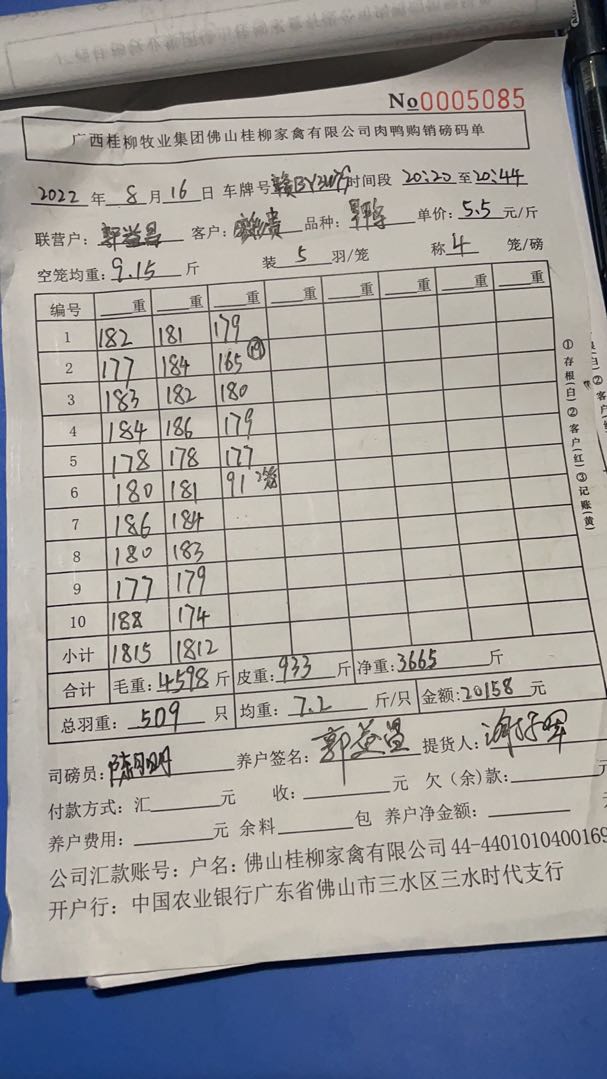 No0005085
广西桂柳牧业集团佛山桂柳家禽有限公司肉鸭购销磅码单
2022 年 8 月 16 日 车牌号 时间段 20:20 至 20:44
联营户: 郭益昌 客户: 品种: 单价: 5.5 元/斤
空笼均重: 9.15 斤 装 5 羽/笼 称 4 笼/磅
编号 重 重 重 重 重 重 重 重
1 182 181 179
2 177 184 165 19
3 183 182 180
4 184 186 179
5 178 178 177
6 180 181 91 2笼
7 186 184
8 180 183
9 177 179
10 188 174
小计 1815 1812
合计 毛重: 4598 斤 皮重: 933 斤 净重: 3665 斤
总羽重: 509 只 均重: 7.2 斤/只 金额: 20158 元
司磅员: 养户签名: 郭益昌 提货人:
付款方式: 汇 元 收: 元 欠(余)款: 元
养户费用: 元 余料 包 养户净金额:
公司汇款账号: 户名: 佛山桂柳家禽有限公司 44-4401010400169
开户行: 中国农业银行广东省佛山市三水区三水时代支行
①存根(白)②客户(红)③记账(黄)